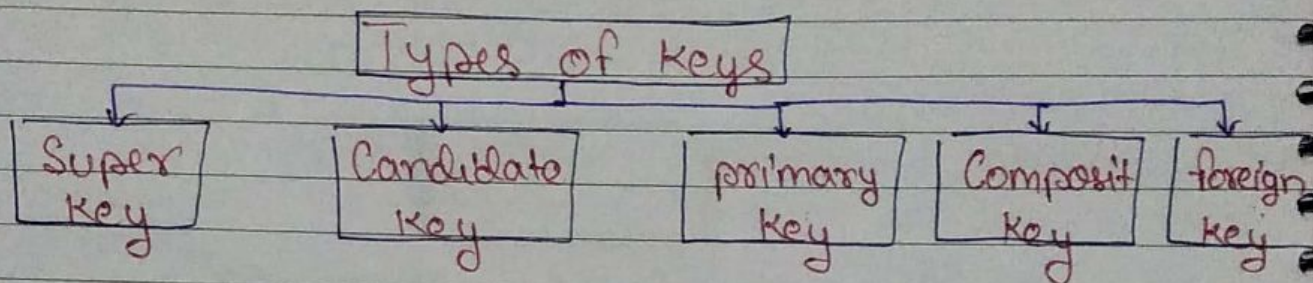 Types of keys
Super
key
Candidate
key
primary
key
Composit
key
foreign
key